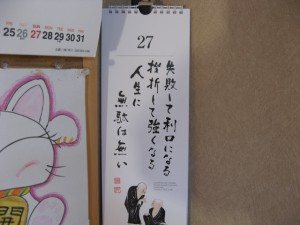 25 26 27 28 29 30 31
27
失敗して利口になる
挫折して強くなる
人生に
無駄は無い
開